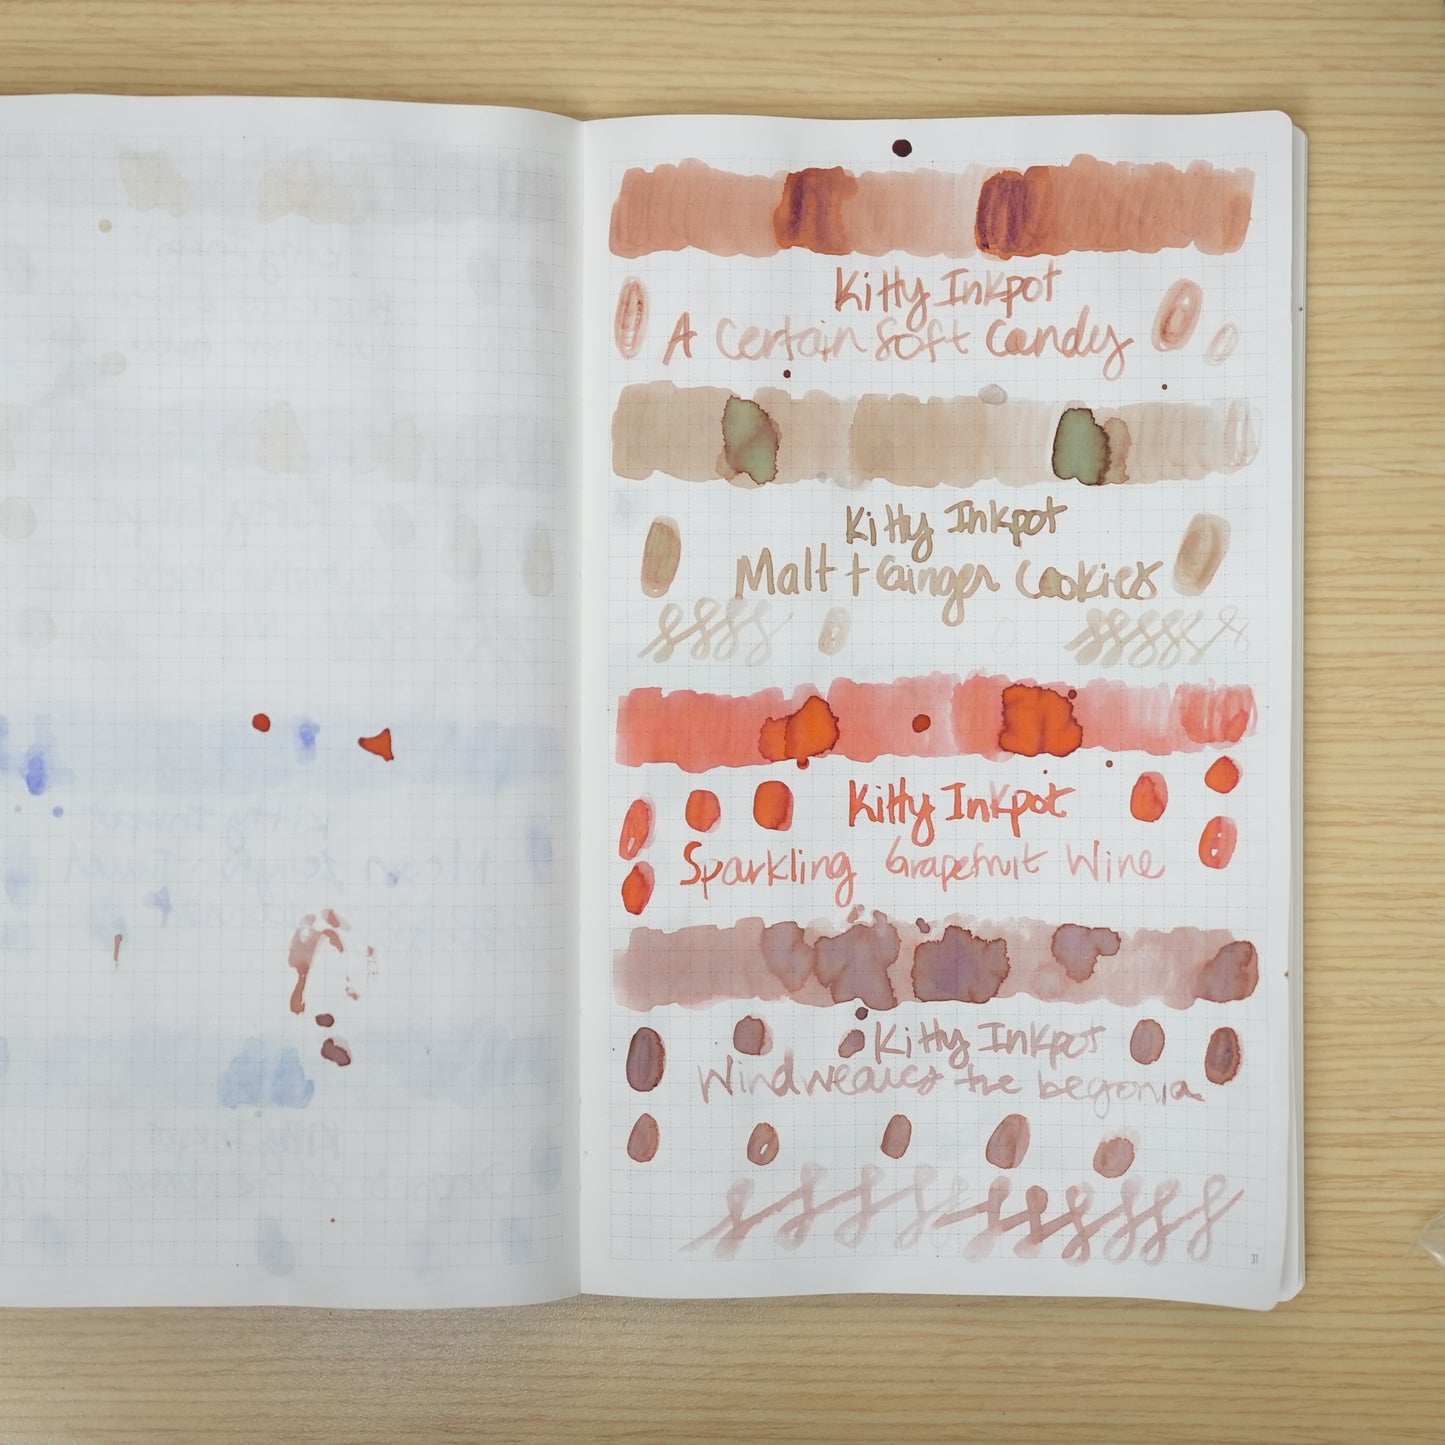 Kitty Inkpot
A Certain Soft Candy
Kitty Inkpot
Malt + Ginger Cookies
Kitty Inkpot
Sparkling Grapefruit Wine
Kitty Inkpot
Windweaves the begonia
31